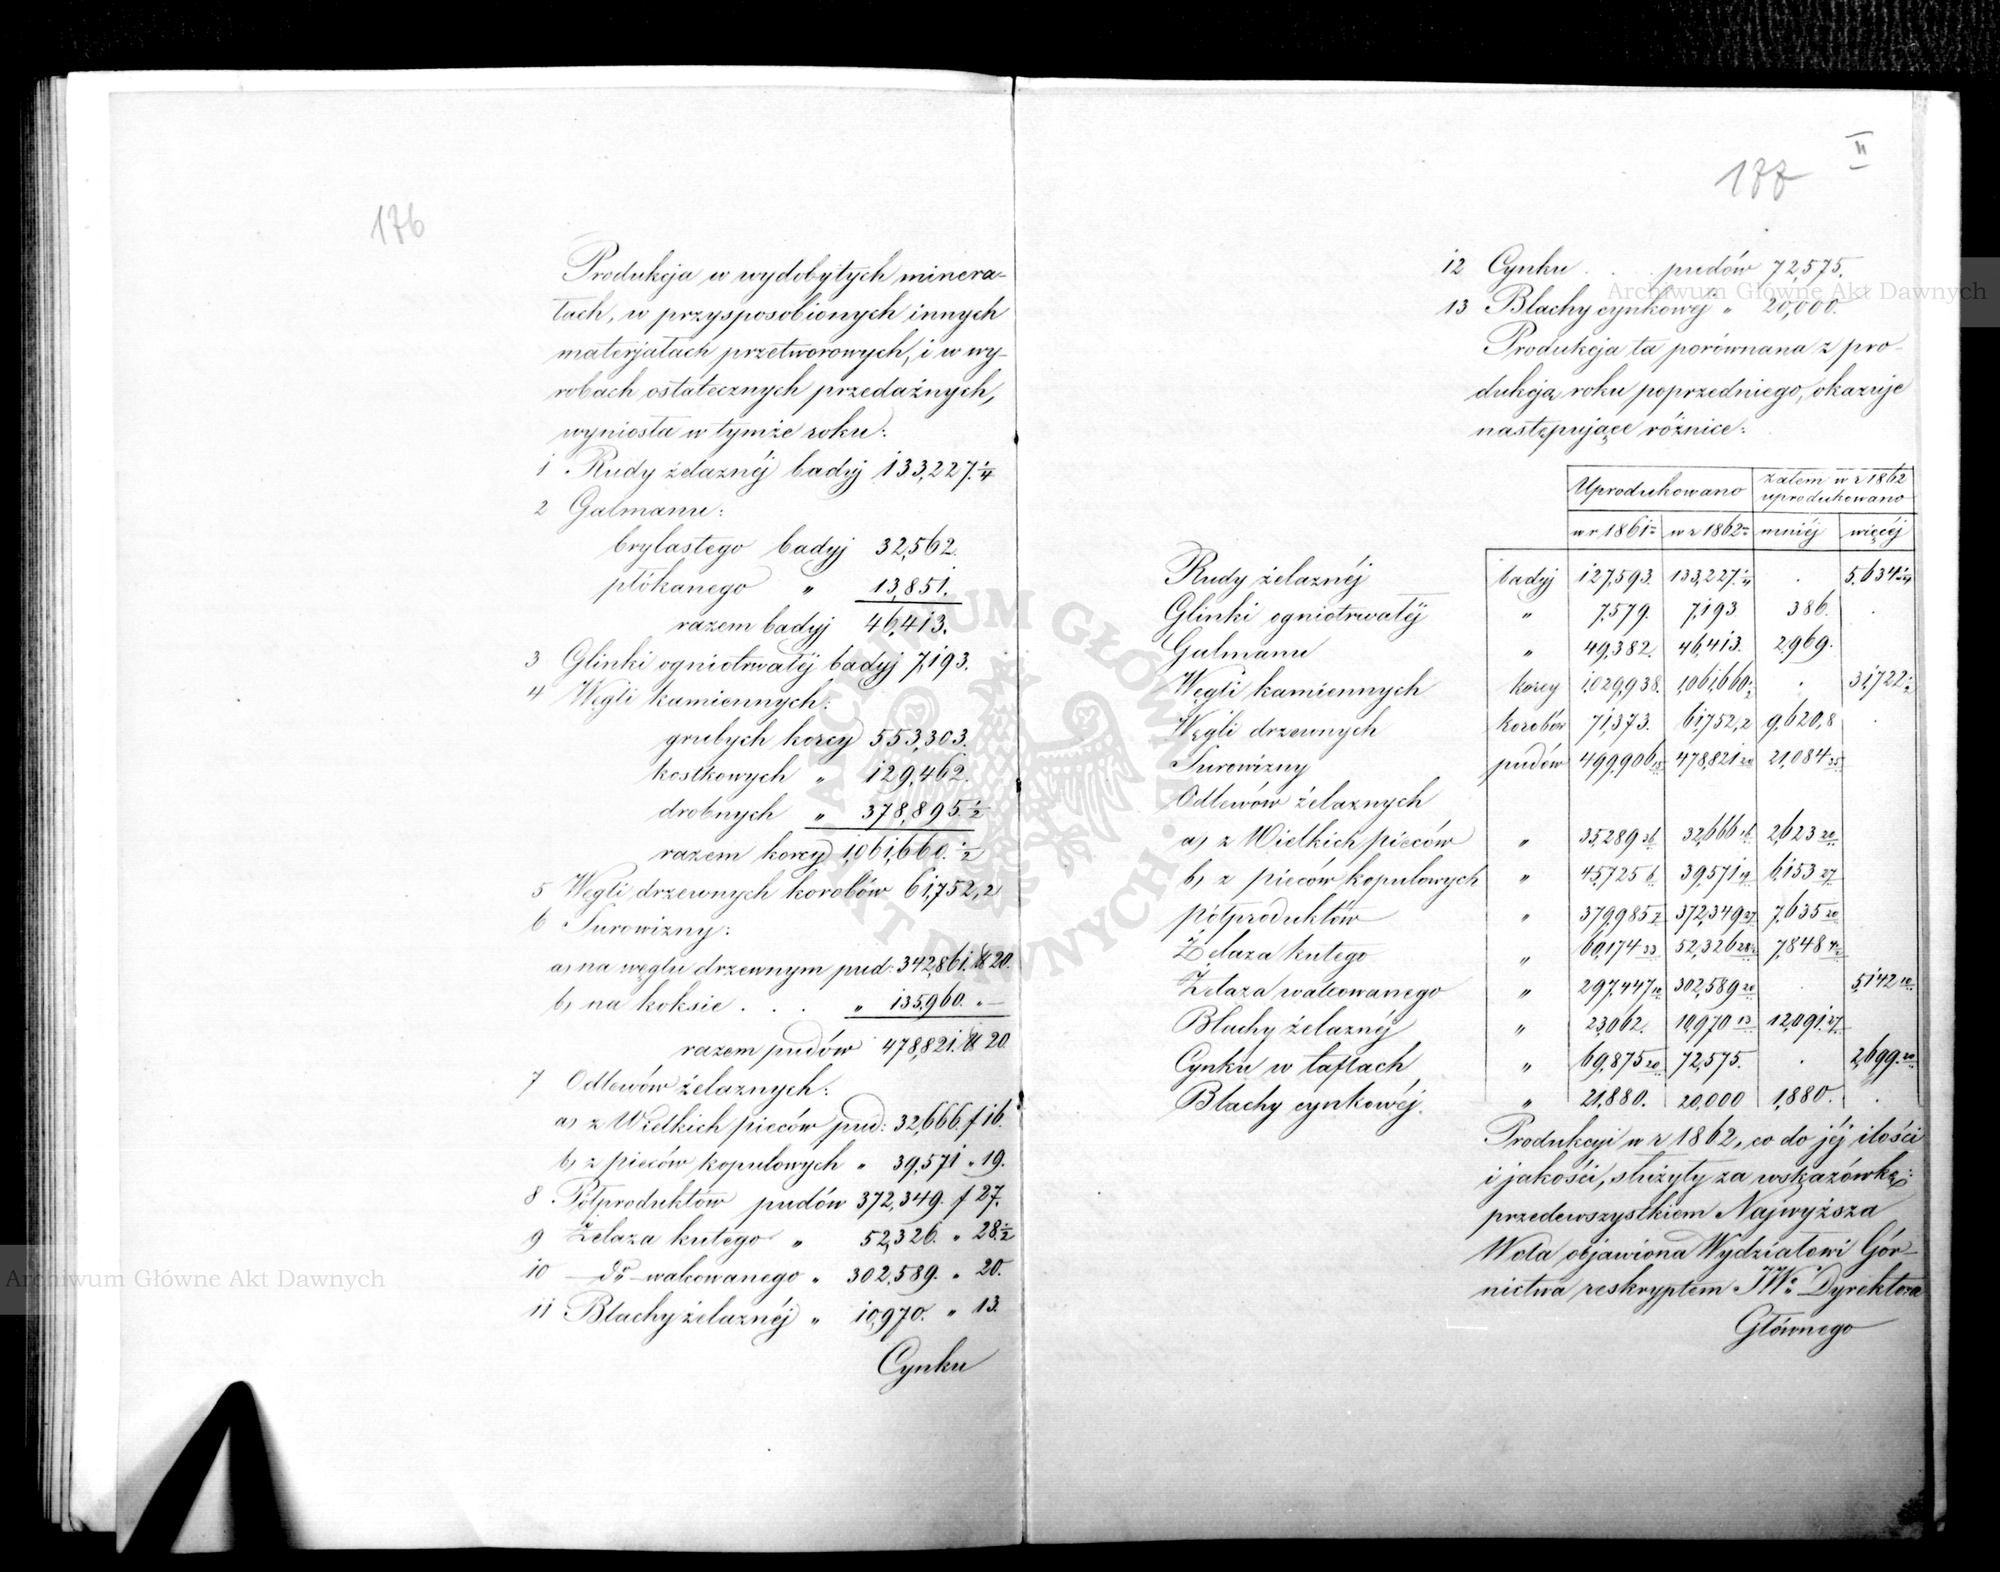 176
Produkcja w wydobytych minera-
łach, w przysposobionych innych
materjałach przetworowych, i w wy-
robach ostatecznych przedażnych,
wyniosła w tymże roku:
1 Rudy żelaznéj badyj 133,227.1/4
2 Galmanu:
brylastego badyj 32,562.
płókanego " 13,851.
razem badyj 46,413.
3 Glinki ogniotrwałéj badyj 7,193.
4 Węgli kamiennych:
grubych korcy 553,303.
kostkowych " 129,462.
drobnych " 378,895.1/2
razem korcy 1,061,660.1/2
5 Węgli drzewnych korobów 61,752,2
6 Surowizny:
a) na węglu drzewnym pud: 342,861. ℔ 20.
b) na koksie . . . " 135,960. " —
razem pudów 478,821. ℔ 20.
7 Odlewów żelaznych:
a) z Wielkich pieców pud: 32,666. f 16.
b) z pieców kopulowych " 39,571 " 19.
8 Półproduktów pudów 372,349. f 27.
9 Żelaza kutego " 52,326. " 28.1/2
10 — do — walcowanego " 302,589. " 20.
11 Blachy żelaznéj " 10,970. " 13.
Cynku
177
II
12 Cynku . . . pudów 72,575.
13 Blachy cynkowéj " 20,000.
Produkcja ta porównana z pro-
dukcją roku poprzedniego, okazuje
następujące różnice:
Uprodukowano zatem w r 1862 uprodukowano
w r 1861 w r 1862 mniéj więcéj
Rudy żelaznéj badyj 127,593. 133,227.1/4 . 5,634 1/4
Glinki ogniotrwałéj " 7,579. 7,193. 386. .
Galmanu " 49,382. 46,413. 2,969.
Węgli kamiennych korcy 1,029,938. 1,061,660 1/2 . 31,722 1/2
Węgli drzewnych korobów 71,373. 61,752,2 9,620,8 .
Surowizny pudów 499,906 15 478,821 20 21,084 35
Odlewów żelaznych
a) z Wielkich pieców " 35,289 36 32,666 16 2,623 20
b) z pieców kopulowych " 45,725 6 39,571 19 6,153 27
półproduktów " 379,985 7 372,349 27 7,635 20
Żelaza kutego " 60,174 33 52,326 28 1/2 7,848 4 1/2
Żelaza walcowanego " 297,447 10 302,589 20 . 5,142 10
Blachy żelaznéj " 23,062. 10,970 13 12,091 27
Cynku w taflach " 69,875 20 72,575. . 2,699 20
Blachy cynkowéj. " 21,880. 20,000 1,880. .
Produkcyi w r 1862, co do jéj ilości
i jakości, służyły za wskazówkę:
przedewszystkiem Najwyższa
Wola objawiona Wydziałowi Gór-
nictwa reskryptem JWo Dyrektora
Głównego
Archiwum Główne Akt Dawnych
Archiwum Główne Akt Dawnych
ARCHIWUM GŁÓWNE AKT DAWNYCH